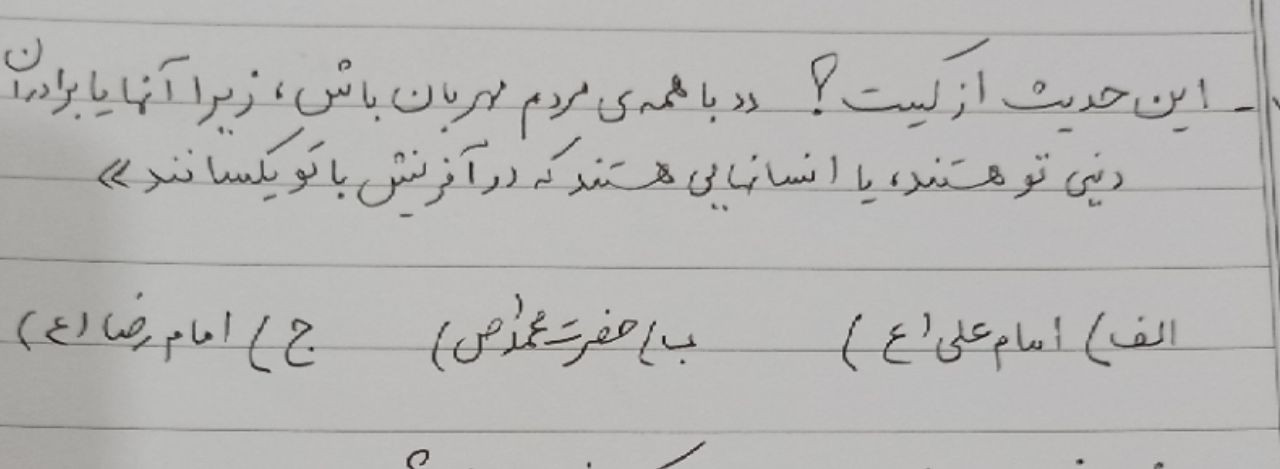 - این حدیث از کیست؟ «با همه‌ی مردم مهربان باش، زیرا آنها یا برادران
دینی تو هستند، یا انسانهایی هستند که در آفرینش با تو یکسانند»
الف) امام علی (ع) ب) حضرت محمد (ص) ج) امام رضا (ع)